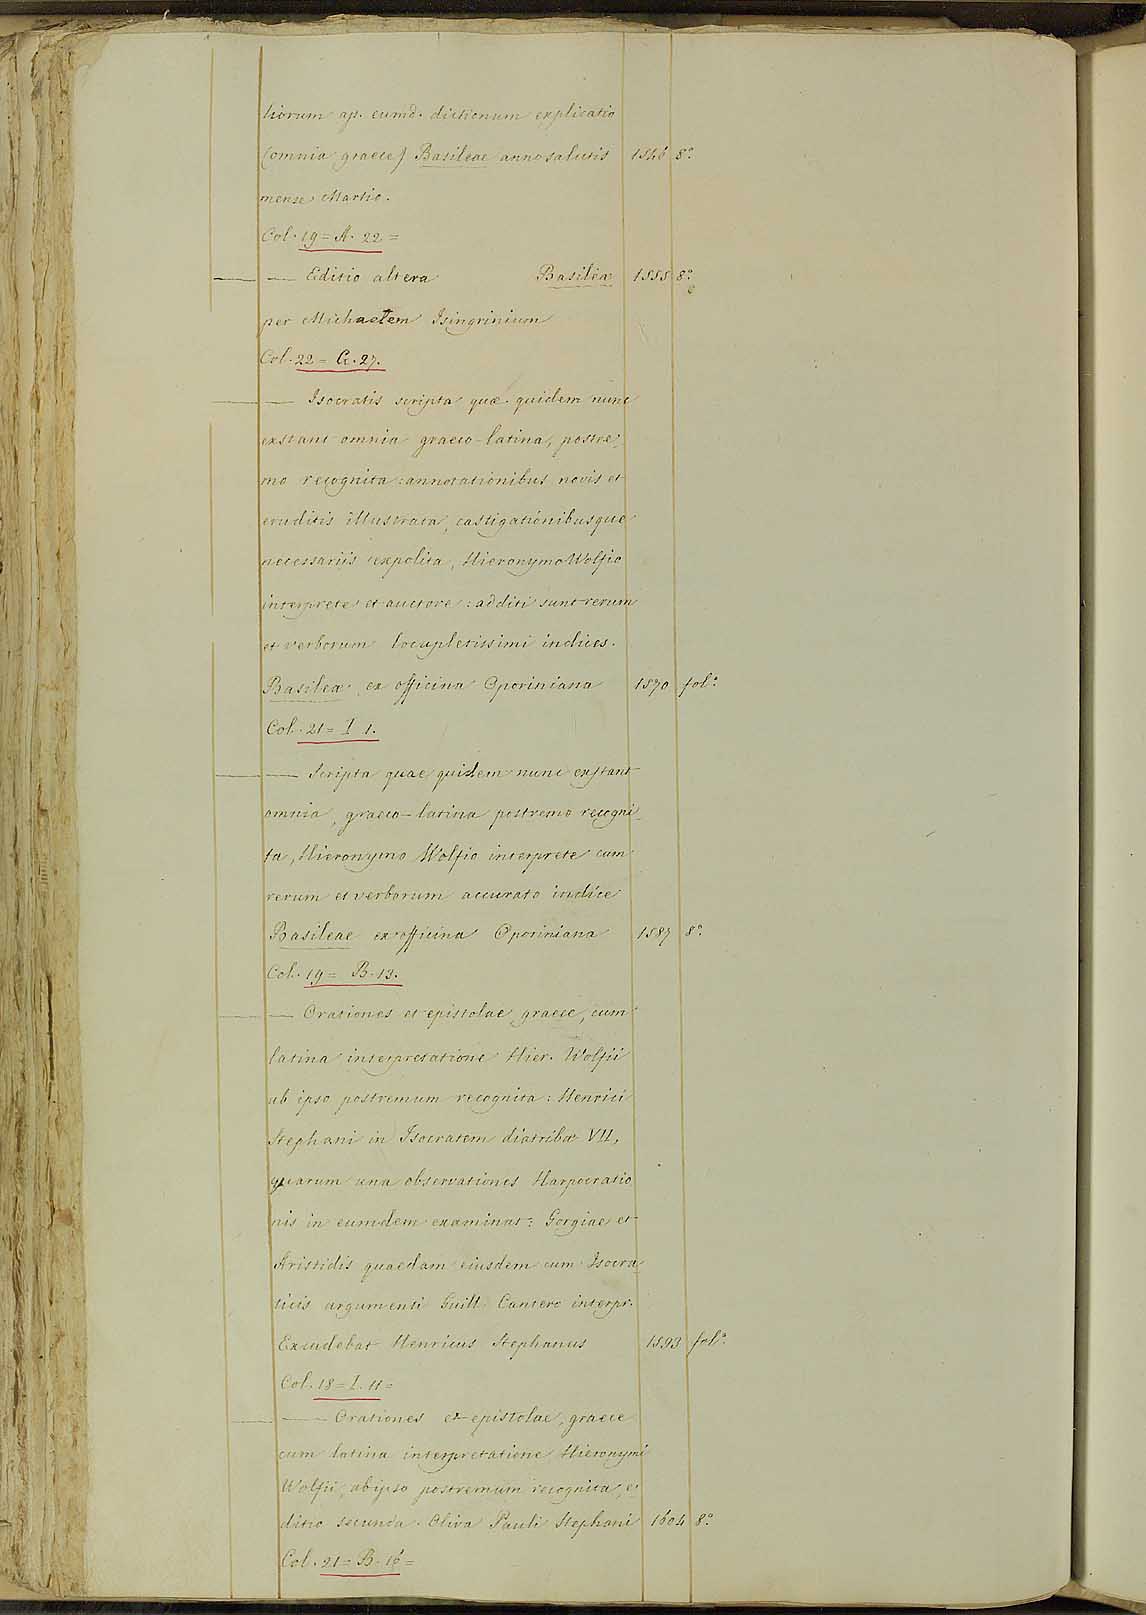 liorum ap. eumd. dictionum explicatio
(omnia graece) Basileae anno salutis 1546 8.o
mense Martio.
Col. 19 = A. 22 =
— — Editio altera Basileæ 1555 8.o
per Michaelem Isingrinium
Col. 22 = G. 27.
— — Isocratis scripta quæ quidem nunc
exstant omnia graeco-latina, postre-
mo recognita: annotationibus novis et
eruditis illustrata, castigationibusque
necessariis expolita, Hieronymo Wolfio
interprete et auctore: additi sunt rerum
et verborum locupletissimi indices.
Basileæ ex officina Oporiniana 1570 fol.o
Col. 21 = I 1.
— — Scripta quae quidem nunc exstant
omnia, graeco-latina postremo recogni-
ta, Hieronymo Wolfio interprete cum
rerum et verborum accurato indice
Basileae ex officina Oporiniana 1587 8.o
Col. 19 = B. 13.
— — Orationes et epistolae graece, cum
latina interpretatione Hier. Wolfii
ab ipso postremum recognita: Henrici
Stephani in Isocratem diatribæ VII,
quarum una observationes Harpocratio
nis in eumdem examinat: Gorgiae et
Aristidis quaedam eiusdem cum Isocra-
ticis argumenti Guill. Cantero interpr.
Excudebat Henricus Stephanus 1593 fol.o
Col. 18 = I. 11 =
— — Orationes et epistolae, graece
cum latina interpretatione Hieronymi
Wolfii, ab ipso postremum recognita, e-
ditio secunda. Oliva Pauli Stephani 1604 8.o
Col. 21 = B. 16 =